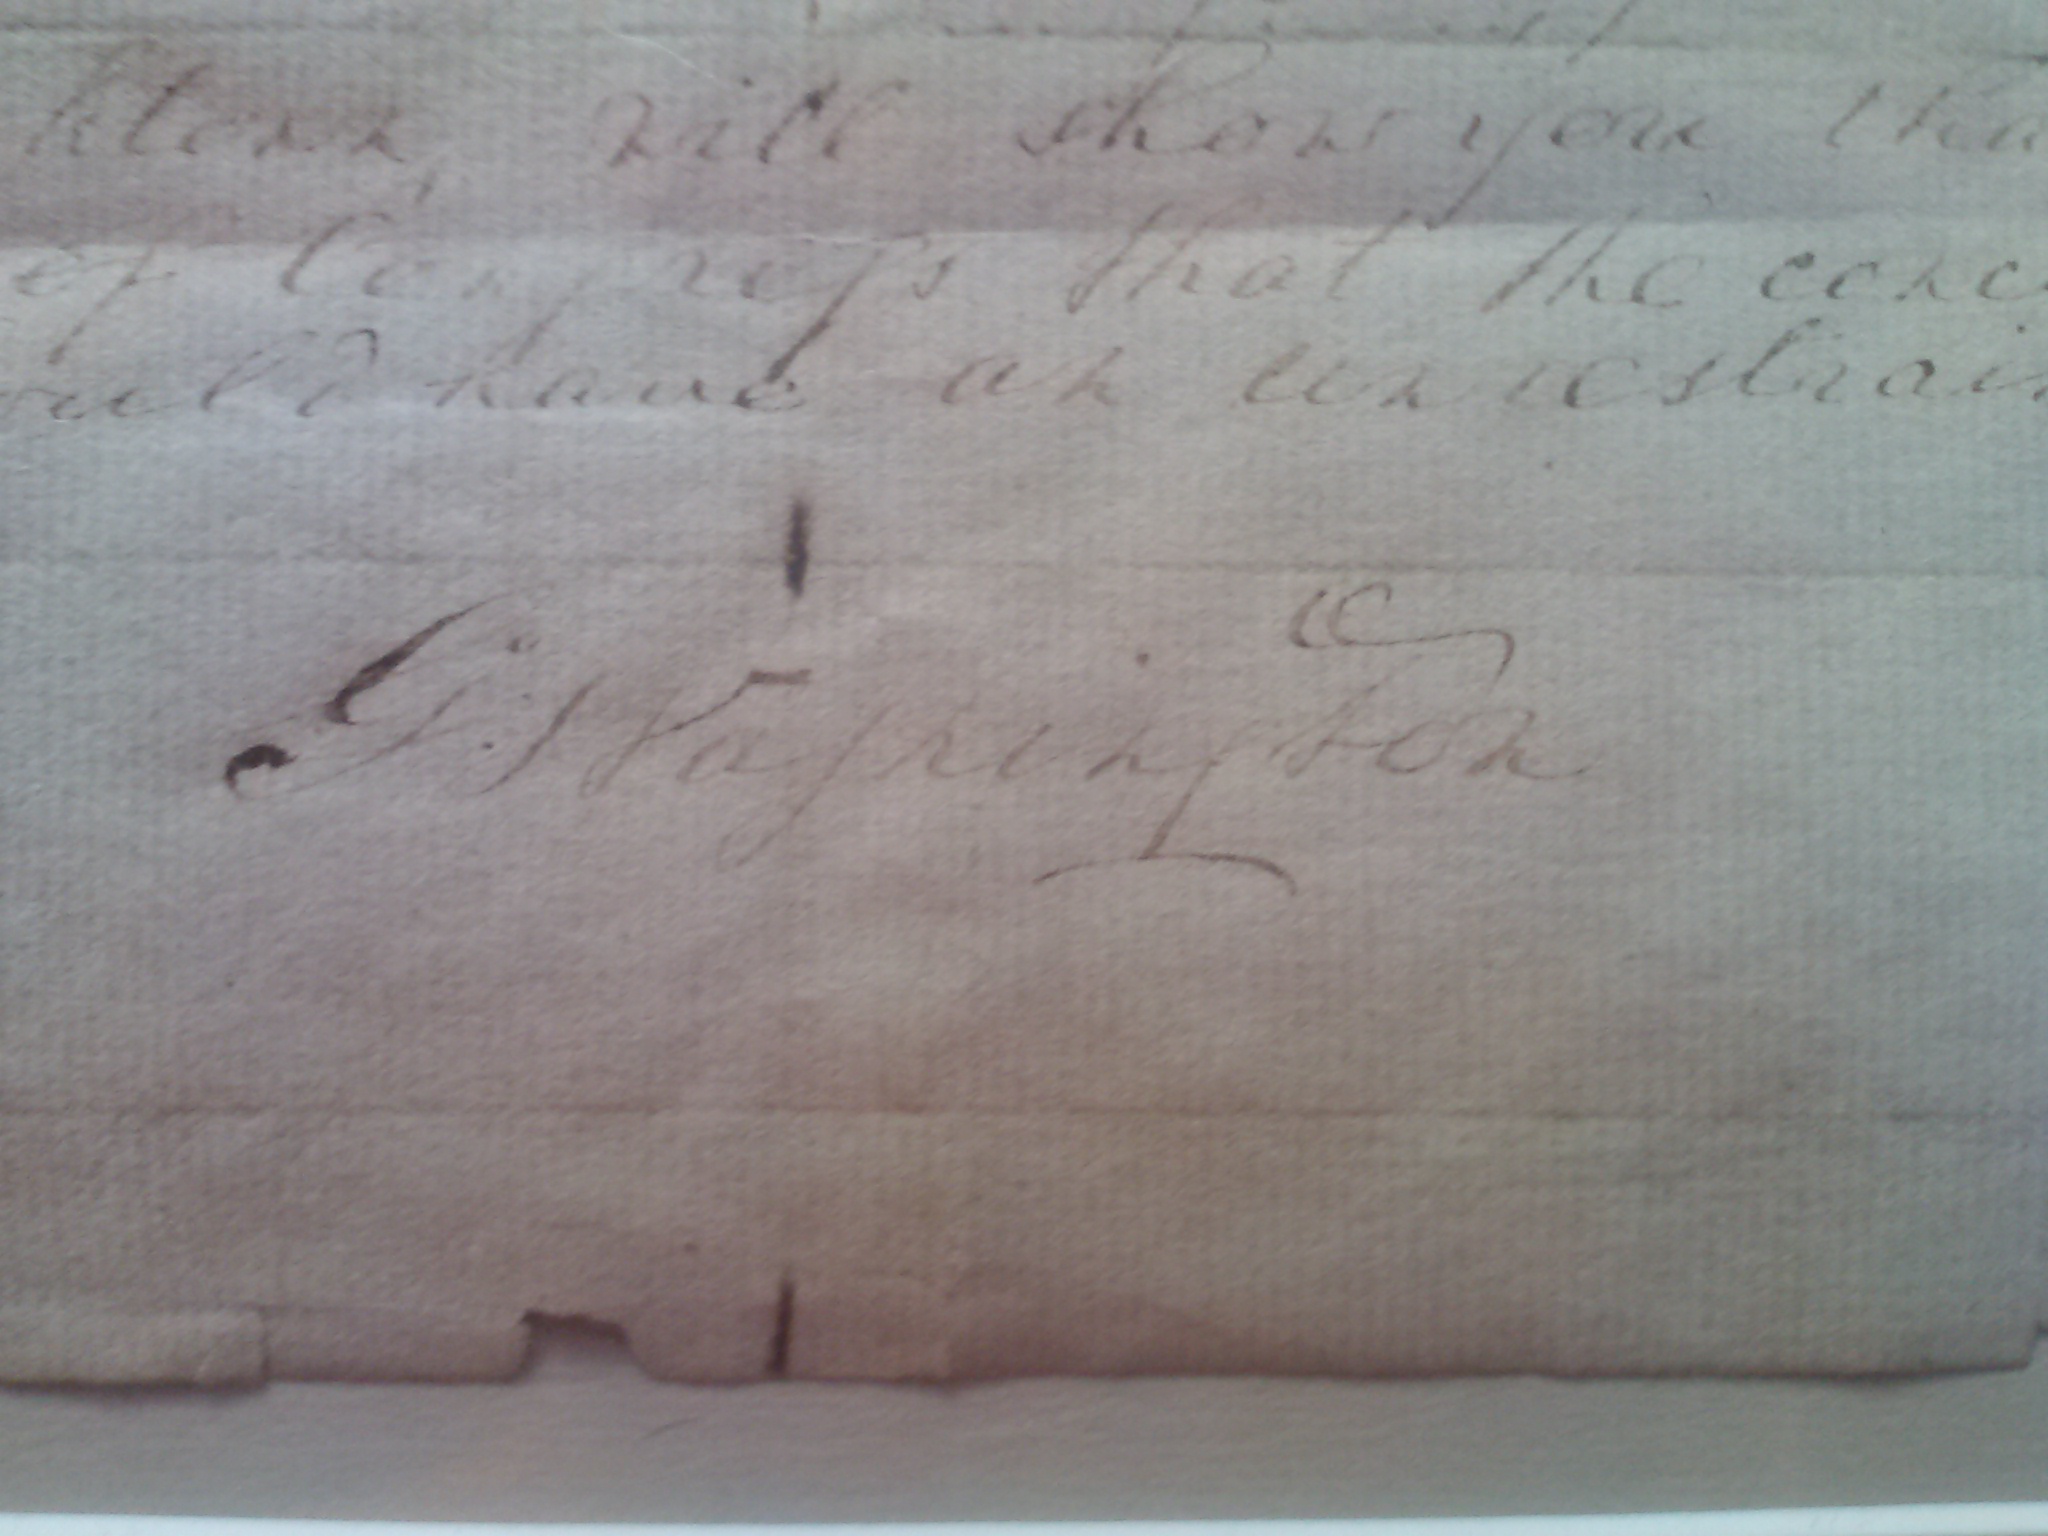 will show you tha
of Congreſs that the conc
ould have an unrestrain
G:Waſhington